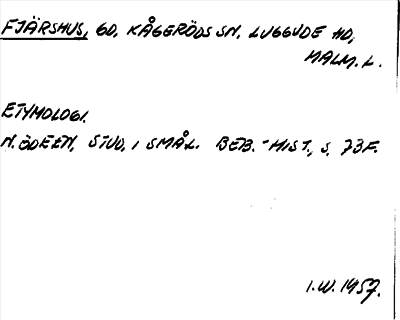 FJÄRSHUS, GD, KÅGERÖDS SN, LUGGUDE HD,
MALM. L.
ETYMOLOGI.
N. ÖDEEN, STUD. I SMÅL. BEB.-HIST., S. 73F.
I.W. 1957.